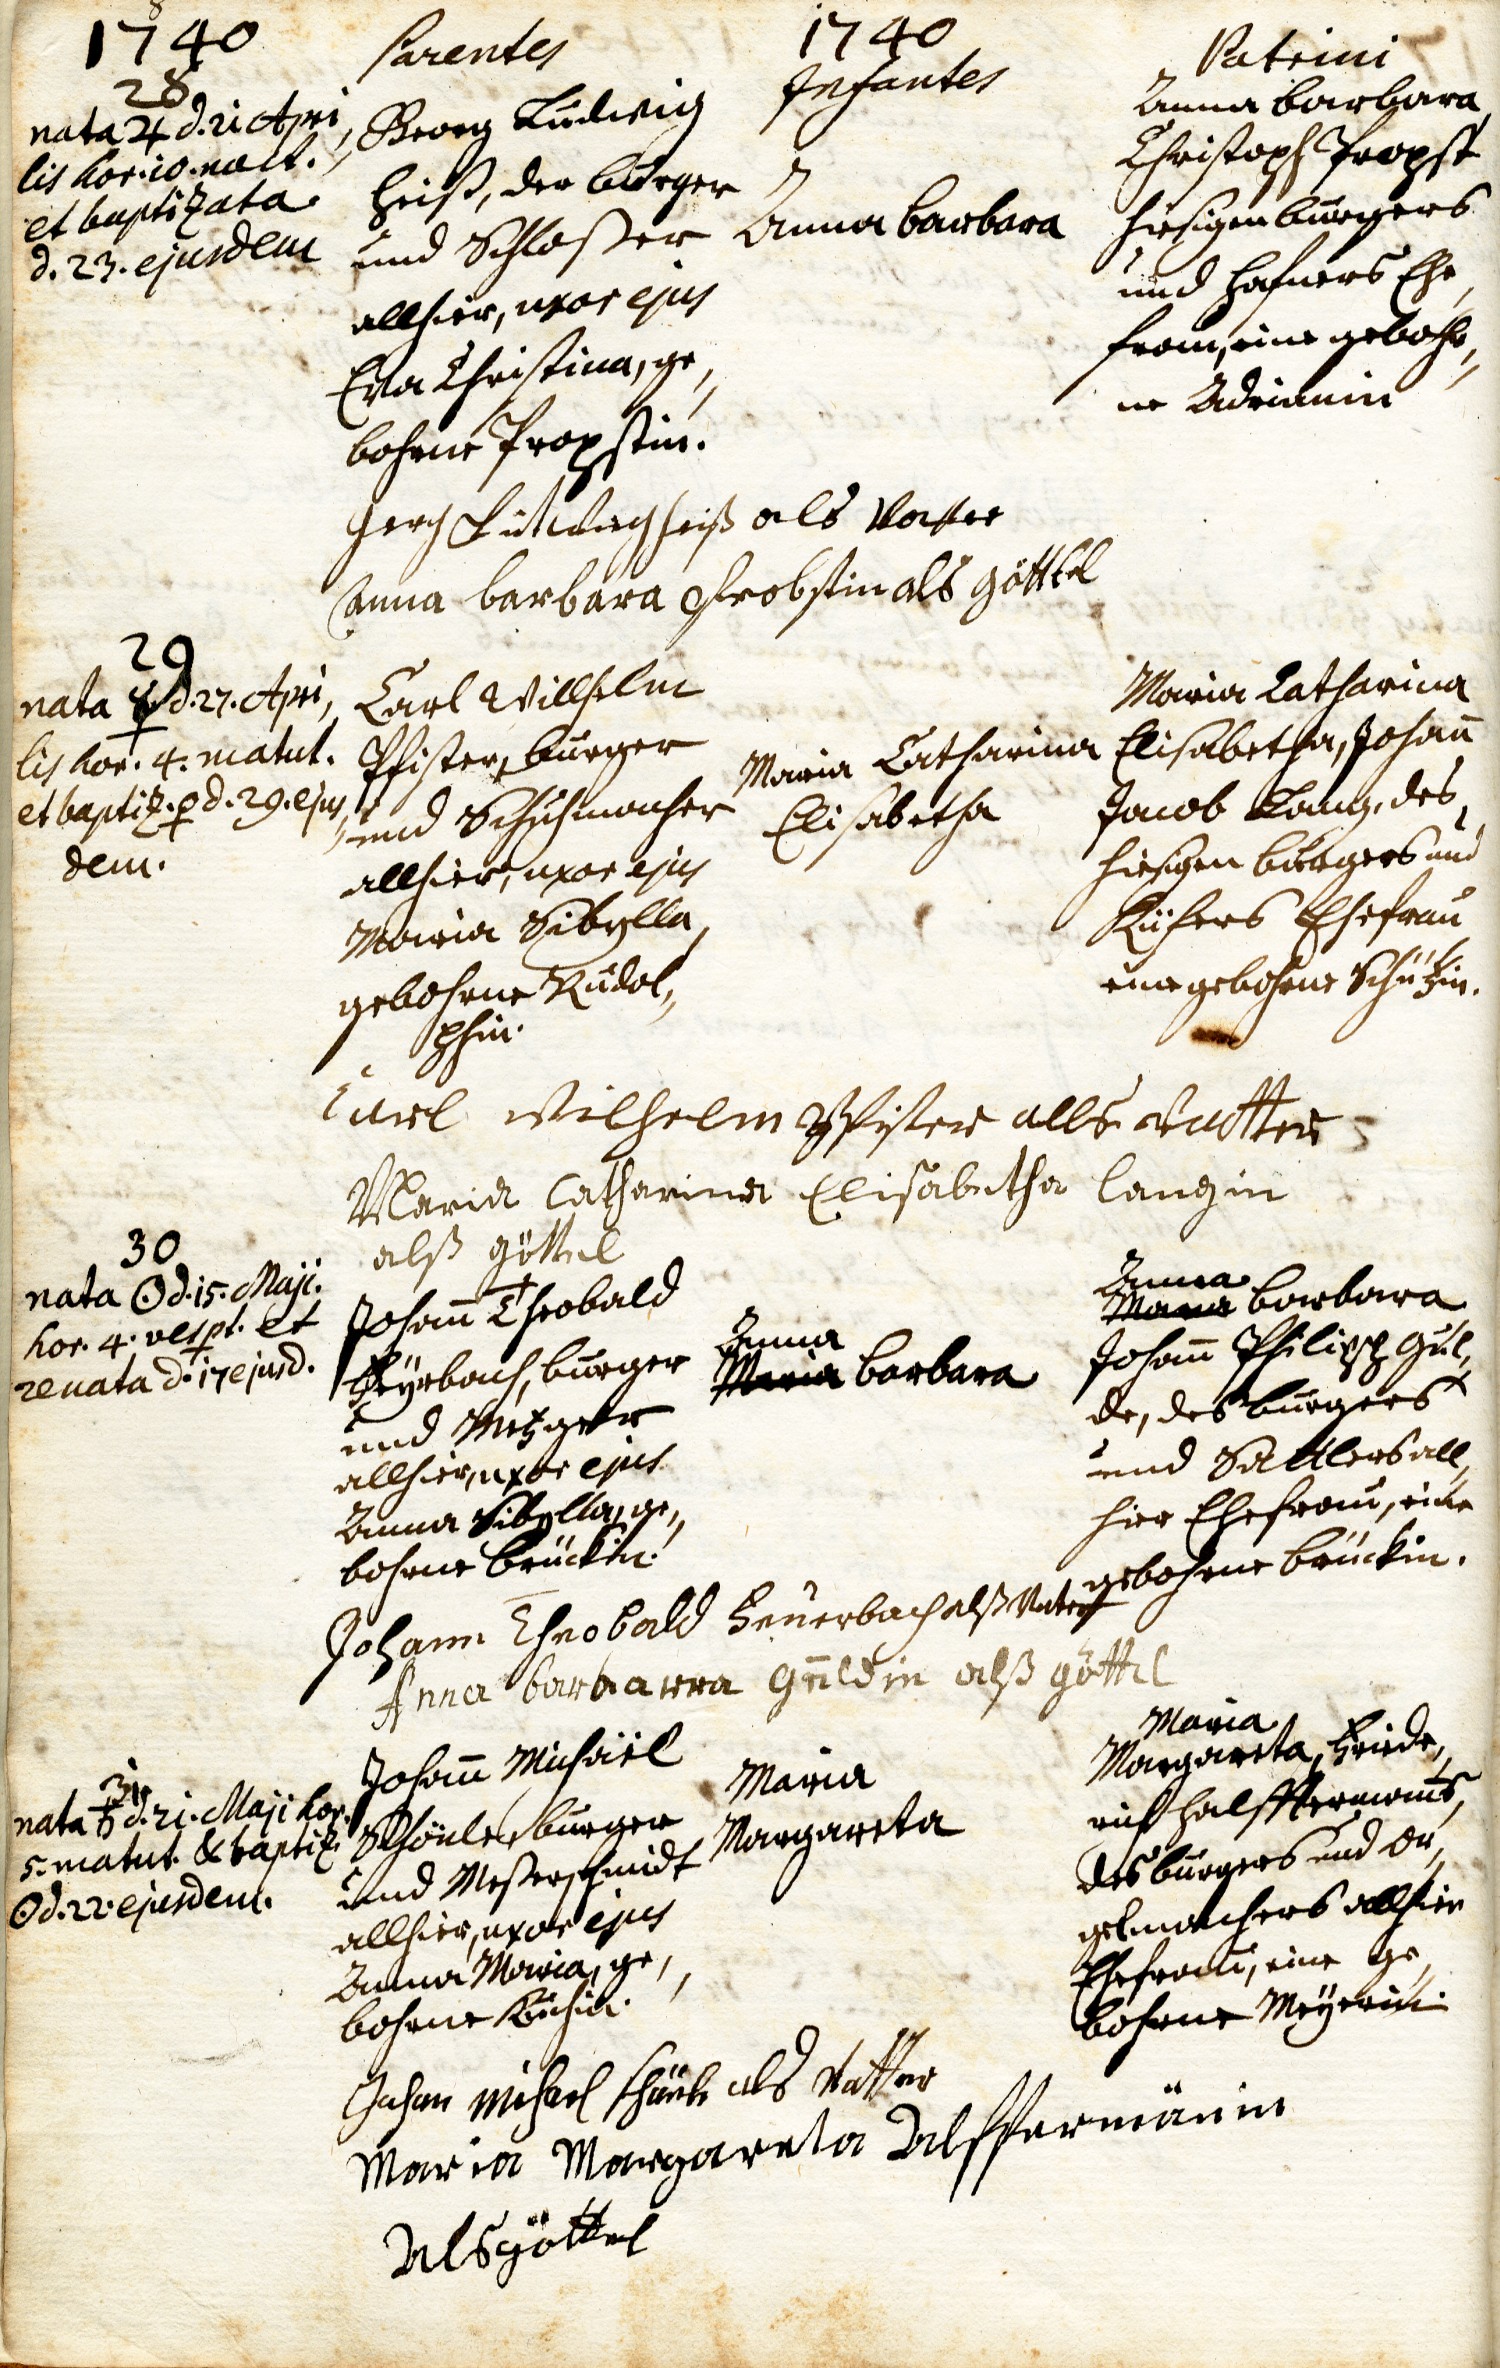 1740
Parentes
1740
Infantes
Patrini
28
nata ♃ d. 21 Apri,
lis hor. 10. noct.
et baptizata
d. 23. ejusdem
Georg Ludwig
Heiß, der burger
und Schloßer
allhier, uxor ejus
Eva Christina, ge,
bohrne Propstin.
Anna barbara
Anna barbara,
Christoph Propst
hiesigen burgers
und Hafners Ehe,
frau, eine gebohr,
ne Adrianin
Gerg Lutwig Heiß als Vatter
Anna barbara Probstin als göttel
29
nata ☿ d. 27. Apri,
lis hor. 4. matut.
et baptiz. ♀ d. 29. ejus,
dem.
Carl Willhelm
Pfister, burger
und Schuhmacher
allhier, uxor ejus
Maria Sibylla,
gebohrne Rudol,
phin.
Maria Catharina
Elisabetha
Maria Catharina
Elisabetha, Johañ
Jacob Lang, des
hiesigen burgers und
Küfers Ehefrau
eine gebohrne Schützin.
Carl Wilhelm Pfister alls Vatter
Maria Catharina Elisabetha langin
alß göttel
30
nata ☉ d. 15. Maji.
hor. 4. vespt. et
renata d. 17 ejusd.
Johañ Theobald
Heyrbach, burger
und Metzger
allhier, uxor ejus
Anna Sibylla, ge,
bohrne brückin.
Anna
Maria barbara
Anna
Maria barbara
Johañ Philipp Gul,
de, des burgers
und Sattlers all,
hier Ehefrau, eine
gebohrne brückin.
Johann Theobald Heuerbach alß Vater
Anna barbarra Guldin alß göttel
31
nata ♄ d. 21. Maji hor.
5. matut. & baptiz.
☉ d. 22. ejusdem.
Johañ Michaël
Schönle, burger
und Meßerschmidt
allhier, uxor ejus
Anna Maria, ge,
bohrne Küchin.
Maria
Margareta
Maria
Margareta, Friede,
rich Halfftermans,
des burgers und Or,
gelmachers allhier
Ehefrau, eine ge,
bohrne Meyerin.
Johan Michael schönle als Vatter
Maria Margareta Alfftermänin
Als göttel